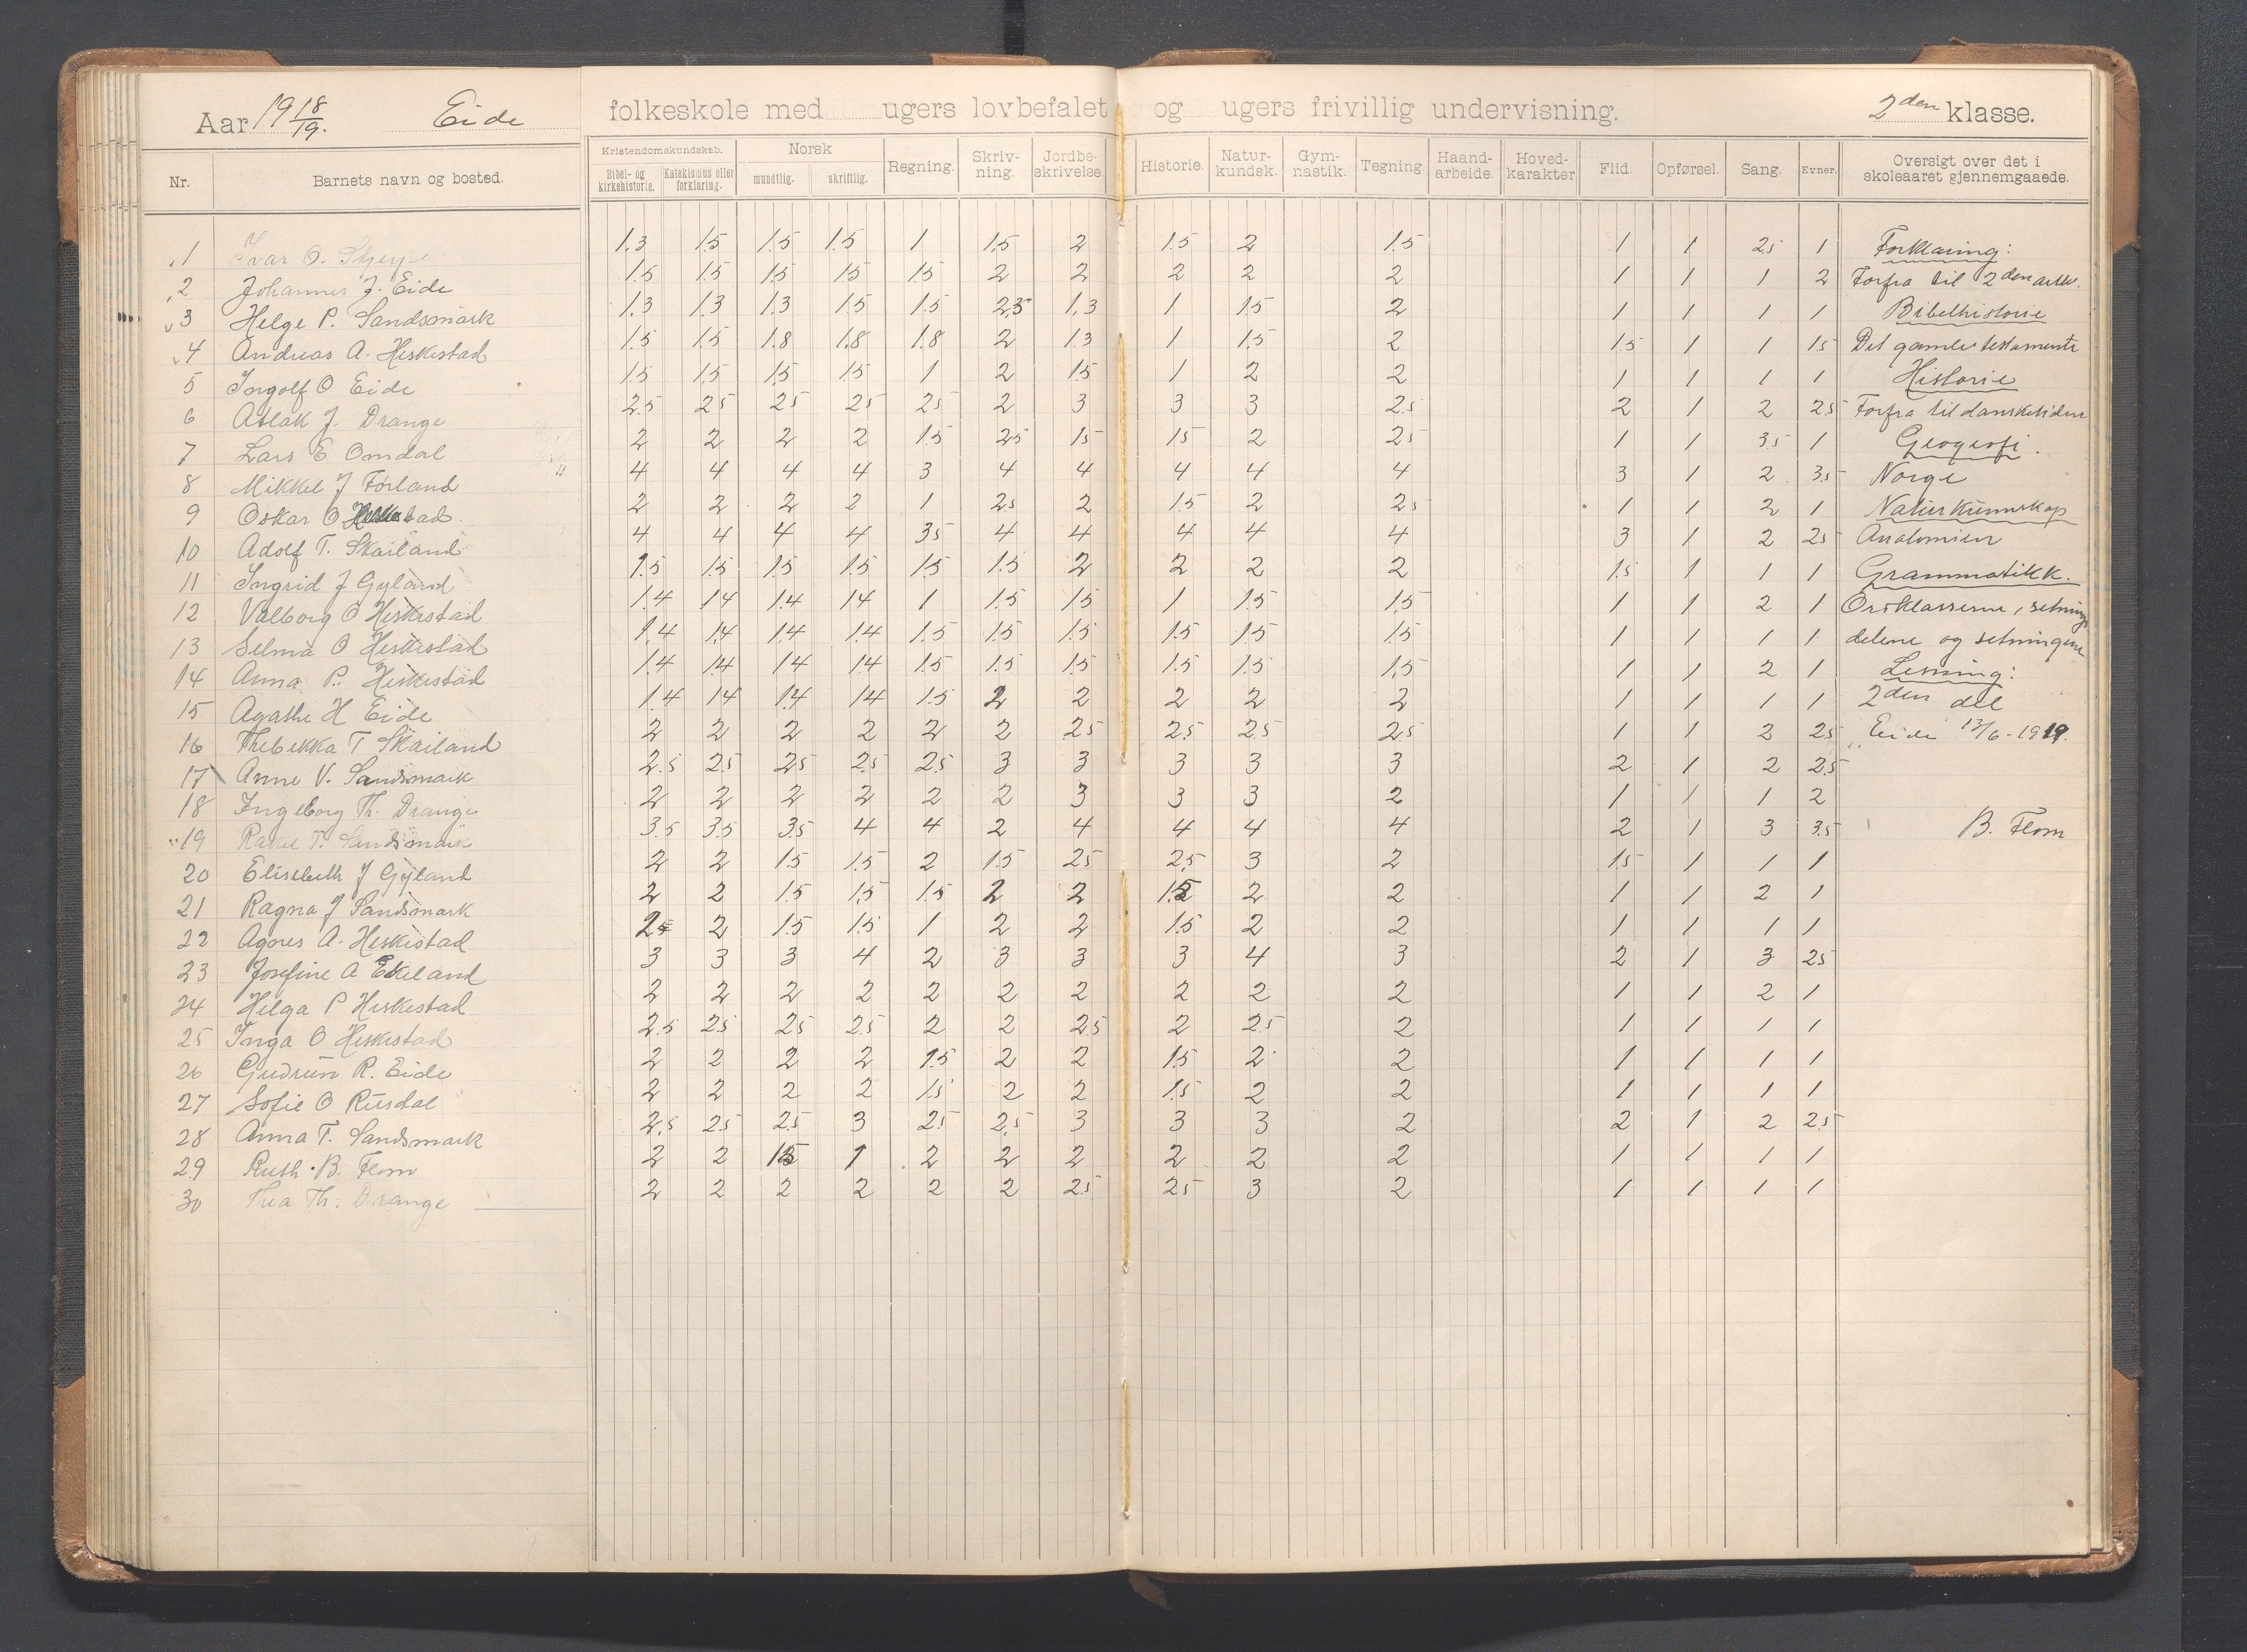 Aar 1918/19. Eide folkeskole med ugers lovbefalet og ugers frivillig undervisning. 2den klasse.
Nr. Barnets navn og bosted. Kristendomskundskab. Bibel- og kirkehistorie. Katekismus eller forklaring. Norsk mundtlig. skriftlig. Regning. Skriv-ning. Jordbe-skrivelse. Historie. Natur-kundsk. Gym-nastik. Tegning. Haand-arbeide. Hoved-karakter Flid. Opførsel. Sang. Evner. Oversigt over det i skoleaaret gjennemgaaede.
1 Ivar O. 1,3 1.5 1.5 1.5 1 1,5 2 1.5 2 1.5 1 1 2.5 1 Forklaring:
2 Johannes J. Eide 1.5 1.5 1.5 1.5 1.5 2 2 2 2 2 1 1 1 2 Forfra til 2den artk.
3 Helge P. Sandsmark 1,3 1,3 1,3 1.5 1.5 2,5 1,3 1 1.5 2 1 1 1 1 Bibelhistorie
4 Andreas A. Heskestad 1.5 1.5 1.8 1.8 1.8 2 1.3 1 1.5 2 1.5 1 1 1.5 Det gamle testamente
5 Ingolf O Eide 1.5 1.5 1.5 1.5 1 2 1.5 1 2 2 1 1 1 1 Historie
6 Aslak J. Drange 2.5 2.5 2.5 2.5 2.5 2 3 3 3 2.5 2 1 2 2.5 Forfra til dansketiden
7 Lars E Omdal 2 2 2 2 1.5 2.5 1.5 1.5 2 2.5 1 1 3.5 1 Geografi.
8 Mikkel J Førland 4 4 4 4 3 4 4 4 4 4 3 1 2 3.5 Norge
9 Oskar O 2 2 2 2 1 2.5 2 1.5 2 2.5 1 1 2 1 Naturkunnskap
10 Adolf T. Skailand 4 4 4 4 3.5 4 4 4 4 4 3 1 2 2.5 Anatomien
11 Ingrid J Gyland 1.5 1.5 1.5 1.5 1.5 1.5 2 2 2 2 1.5 1 1 1 Grammatikk.
12 Valborg O Heskestad 1.4 1.4 1.4 1.4 1 1.5 1.5 1 1.5 1.5 1 1 2 1 Ordklasserne, setnings
13 Selma O Heskestad 1.4 1.4 1.4 1.4 1.5 1.5 1.5 1.5 1.5 1.5 1 1 1 1 delene og setningene
14 Anna P. Heskestad 1.4 1.4 1.4 1.4 1.5 1.5 1.5 1.5 1.5 1.5 1 1 2 1 Lesning:
15 Agathe H Eide 1.4 1.4 1.4 1.4 1.5 2 2 2 2 2 1 1 1 1 2den del
16 Thebekka T Skailand 2 2 2 2 2 2 2.5 2.5 2.5 2.5 1 1 2 2.5 Eide 13/6-1919.
17 Anne V. Sandsmark 2.5 2.5 2.5 2.5 2.5 3 3 3 3 3 2 1 2 2.5
18 Ingeborg Th. Drange 2 2 2 2 2 2 3 3 3 2 1 1 1 2
19 Rakel T. Sandsmark 3.5 3.5 3.5 4 4 2 4 4 4 4 2 1 3 3.5 B. Flom
20 Elisebeth J Gyland 2 2 1.5 1.5 2 1.5 2.5 2.5 3 2 1.5 1 1 1
21 Ragna J Sandsmark 2 2 1.5 1.5 1.5 2 2 1.5 2 2 1 1 2 1
22 Agnes A. Heskestad 2.5 2 1.5 1.5 1 2 2 1.5 2 2 1 1 1 1
23 Josefine A Ekeland 3 3 3 4 2 3 3 3 4 3 2 1 3 2.5
24 Helga P Heskestad 2 2 2 2 2 2 2 2 2 2 1 1 2 1
25 Inga O Heskestad 2.5 2.5 2.5 2.5 2 2 2.5 2 2.5 2 1 1 1 1
26 Gudrun R. Eide 2 2 2 2 1.5 2 2 1.5 2 2 1 1 1 1
27 Sofie O Rusdal 2 2 2 2 1.5 2 2 1.5 2 2 1 1 1 1
28 Anna T. Sandsmark 2.5 2.5 2.5 3 2.5 2.5 3 3 3 2 2 1 2 2.5
29 Ruth B. Flom 2 2 1.5 1 2 2 2 2 2 2 1 1 1 1
30 Thea Th. Drange 2 2 2 2 2 2 2.5 2.5 3 2 1 1 1 1